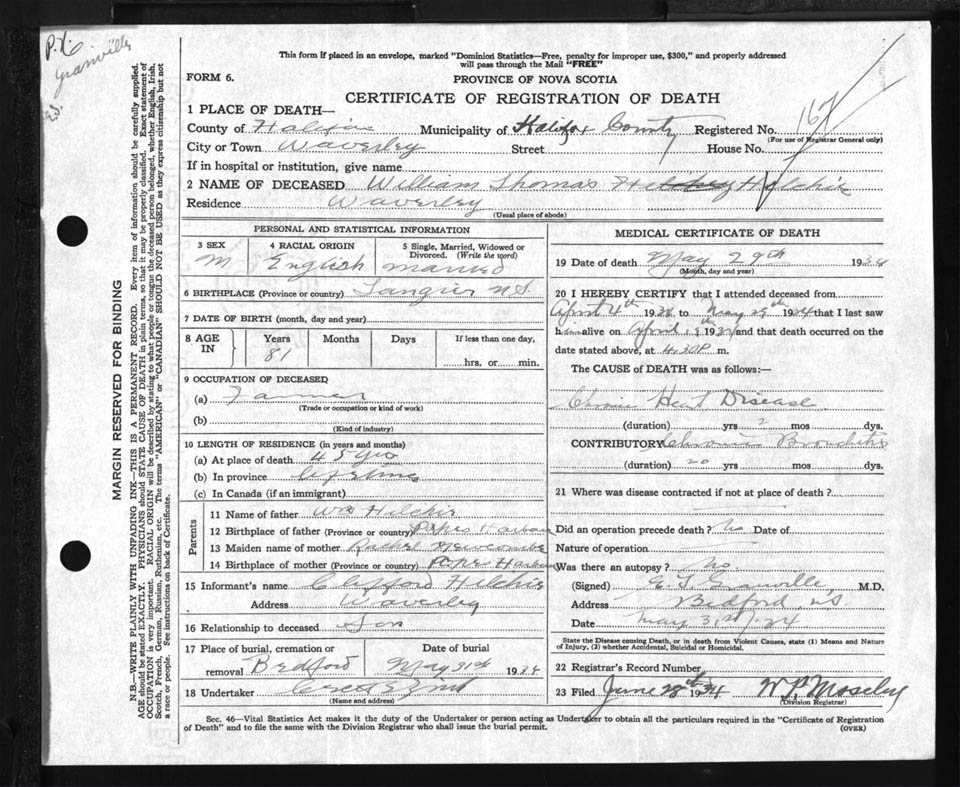 P.X.
Granville
E.J.
This form if placed in an envelope, marked "Dominion Statistics—Free, penalty for improper use, $300," and properly addressed
will pass through the Mail "FREE"
FORM 6.
PROVINCE OF NOVA SCOTIA
CERTIFICATE OF REGISTRATION OF DEATH
1 PLACE OF DEATH—
County of Halifax Municipality of Halifax County Registered No. 167
(For use of Registrar General only)
City or Town Waverley Street House No.
If in hospital or institution, give name
2 NAME OF DECEASED William Thomas Hilchie
Residence Waverley
(Usual place of abode)
PERSONAL AND STATISTICAL INFORMATION
3 SEX 4 RACIAL ORIGIN 5 Single, Married, Widowed or
Divorced. (Write the word)
M English married
6 BIRTHPLACE (Province or country) Tangier N.S.
7 DATE OF BIRTH (month, day and year)
8 AGE IN Years Months Days If less than one day,
81 hrs. or min.
9 OCCUPATION OF DECEASED
(a) Farmer
(Trade or occupation or kind of work)
(b)
(Kind of industry)
10 LENGTH OF RESIDENCE (in years and months)
(a) At place of death 45 yrs
(b) In province lifetime
(c) In Canada (if an immigrant)
Parents
11 Name of father Wm Hilchie
12 Birthplace of father (Province or country) Popes Harbour
13 Maiden name of mother Rachel Newcombe
14 Birthplace of mother (Province or country) Popes Harbour
15 Informant's name Clifford Hilchie
Address Waverley
16 Relationship to deceased Son
17 Place of burial, cremation or Date of burial
removal Bedford May 31st 1934
18 Undertaker
(Name and address)
MEDICAL CERTIFICATE OF DEATH
19 Date of death May 29th 1934
(Month, day and year)
20 I HEREBY CERTIFY that I attended deceased from
April 4th 19 to May 29th 1934 that I last saw
h im alive on April 19 and that death occurred on
date stated above, at 4.30P m.
The CAUSE of DEATH was as follows:—
Chronic Heart Disease
(duration) yrs 2 mos dys.
CONTRIBUTORY Chronic Bronchitis
(duration) 20 yrs mos dys.
21 Where was disease contracted if not at place of death?
Did an operation precede death? No Date of
Nature of operation
Was there an autopsy? No.
(Signed) E. J. Granville M.D.
Address Bedford, NS
Date May 31st/34
State the Disease causing Death, or in death from Violent Causes, state (1) Means and Nature
of Injury, (2) whether Accidental, Suicidal or Homicidal.
22 Registrar's Record Number
23 Filed June 28th 1934 W P Moseley
(Division Registrar)
Sec. 46—Vital Statistics Act makes it the duty of the Undertaker or person acting as Undertaker to obtain all the particulars required in the "Certificate of Registration
of Death" and to file the same with the Division Registrar who shall issue the burial permit.
(OVER)
MARGIN RESERVED FOR BINDING
N.B.—WRITE PLAINLY WITH UNFADING INK—THIS IS A PERMANENT RECORD. Every item of information should be carefully supplied.
AGE should be stated EXACTLY. PHYSICIANS should STATE CAUSE OF DEATH in plain terms, so that it may be properly classified. Exact statement of
OCCUPATION is very important. RACIAL ORIGIN will be described by stating to what people or tongue the deceased person belonged, whether English, Irish,
Scotch, French, German, Russian, Ruthenian, etc. The terms "AMERICAN" or "CANADIAN" SHOULD NOT BE USED as they express citizenship but not
a race or people. See instructions on back of Certificate.